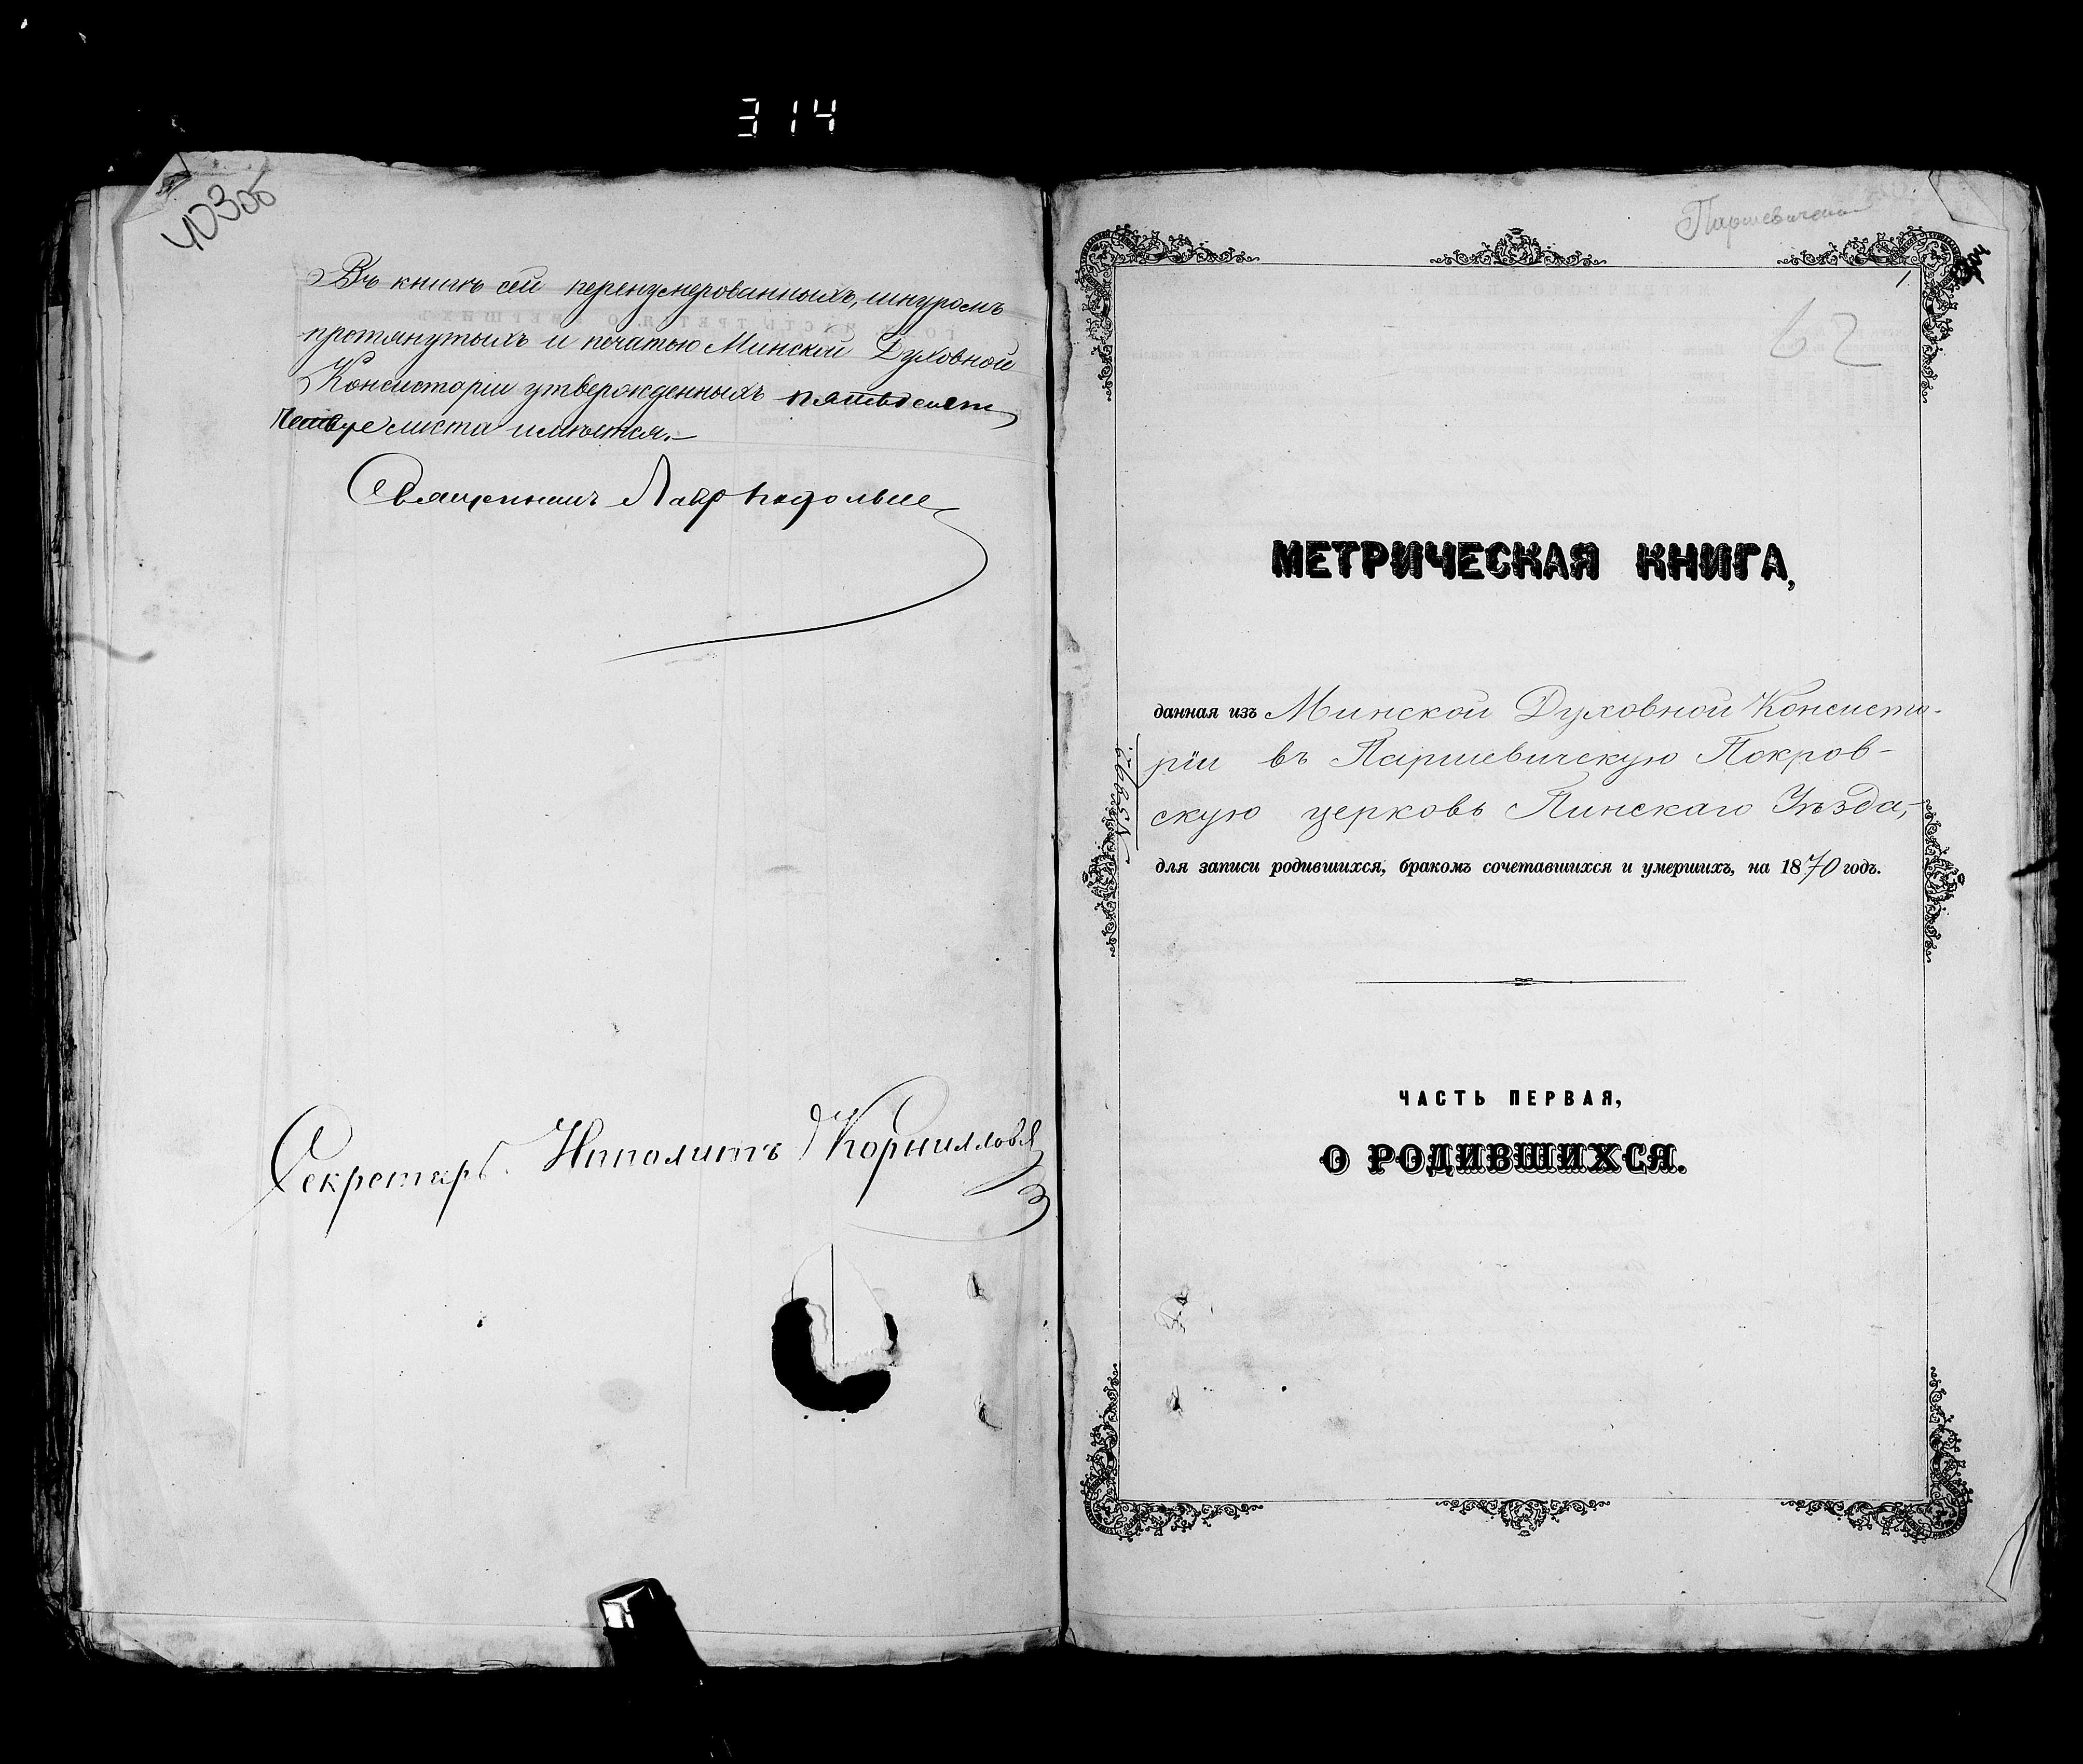 314
403об
Въ книгѣ сей перенумерованныхъ, шнуромъ
протянутыхъ и печатью Минской Духовной
Консисторіи утвержденныхъ пятьдесят
листа имѣется.
Священникъ Лавр
Секретарь Ипполитъ Корниловъ
Паршевичская
1
62
МЕТРИЧЕСКАЯ КНИГА,
данная изъ Минской Духовной Консисто-
ріи въ Паршевичскую Покров-
скую церковь Пинскаго Уѣзда,
для записи родившихся, бракомъ сочетавшихся и умершихъ, на 1870 годъ.
ЧАСТЬ ПЕРВАЯ,
О РОДИВШИХСЯ.